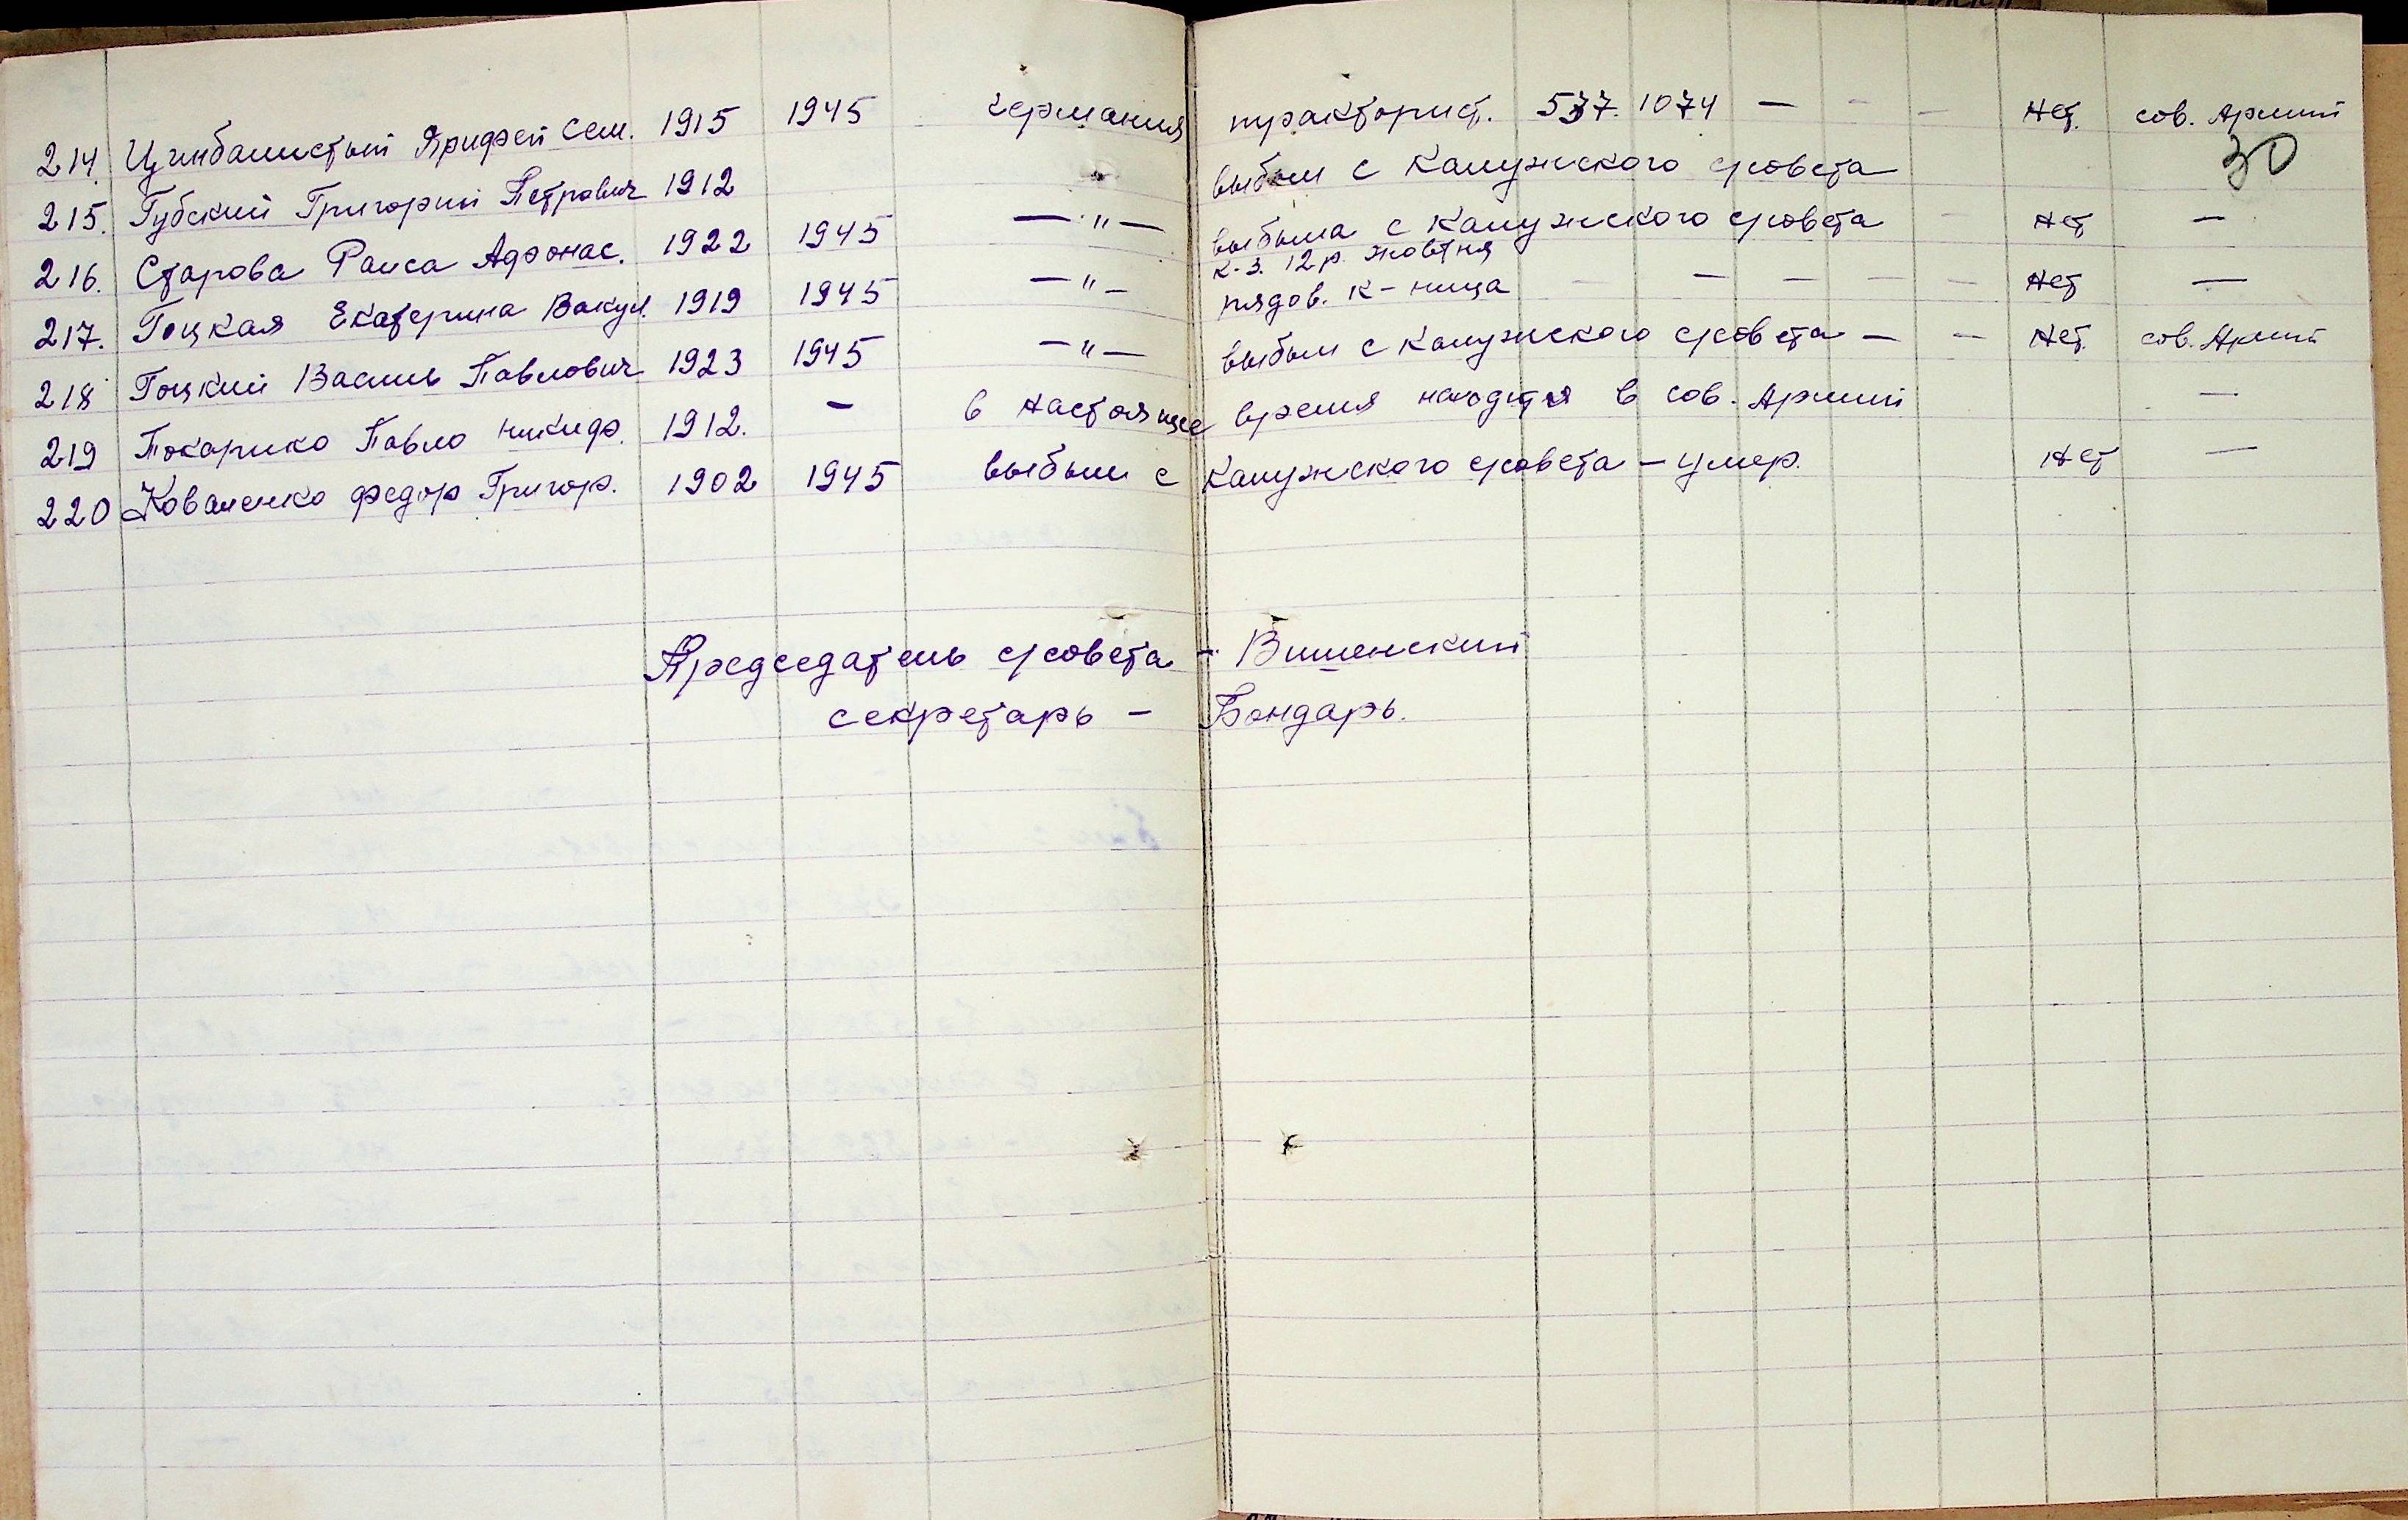 214. Цимбалистый Ярифей Сем. 1915 1945 германия тракторист. 537. 1074 — - - Нет. сов. Армии
30
215. Губский Григорий Петрович 1912 выбыл с Калужского с/совета
216. Старова Раиса Афонас. 1922 1945 — " — выбыла с Калужского с/совета - Нет —
к-з. 12 р. жовтня
217. Гоцкая Екатерина Вакул. 1919 1945 — " — рядов. к-ница - — — - - Нет —
218 Гоцкий Василь Павлович 1923 1945 — " — выбыл с Калужского с/совета — - Нет. сов. Армии
219 Токарико Павло никиф. 1912. — в настоящее время находится в сов. Армии —
220 Коваленко федор Григор. 1902 1945 выбыл с Калужского с/совета — умер. Нет —
Председатель с/совета - Вишенский
секретарь — Бондарь.